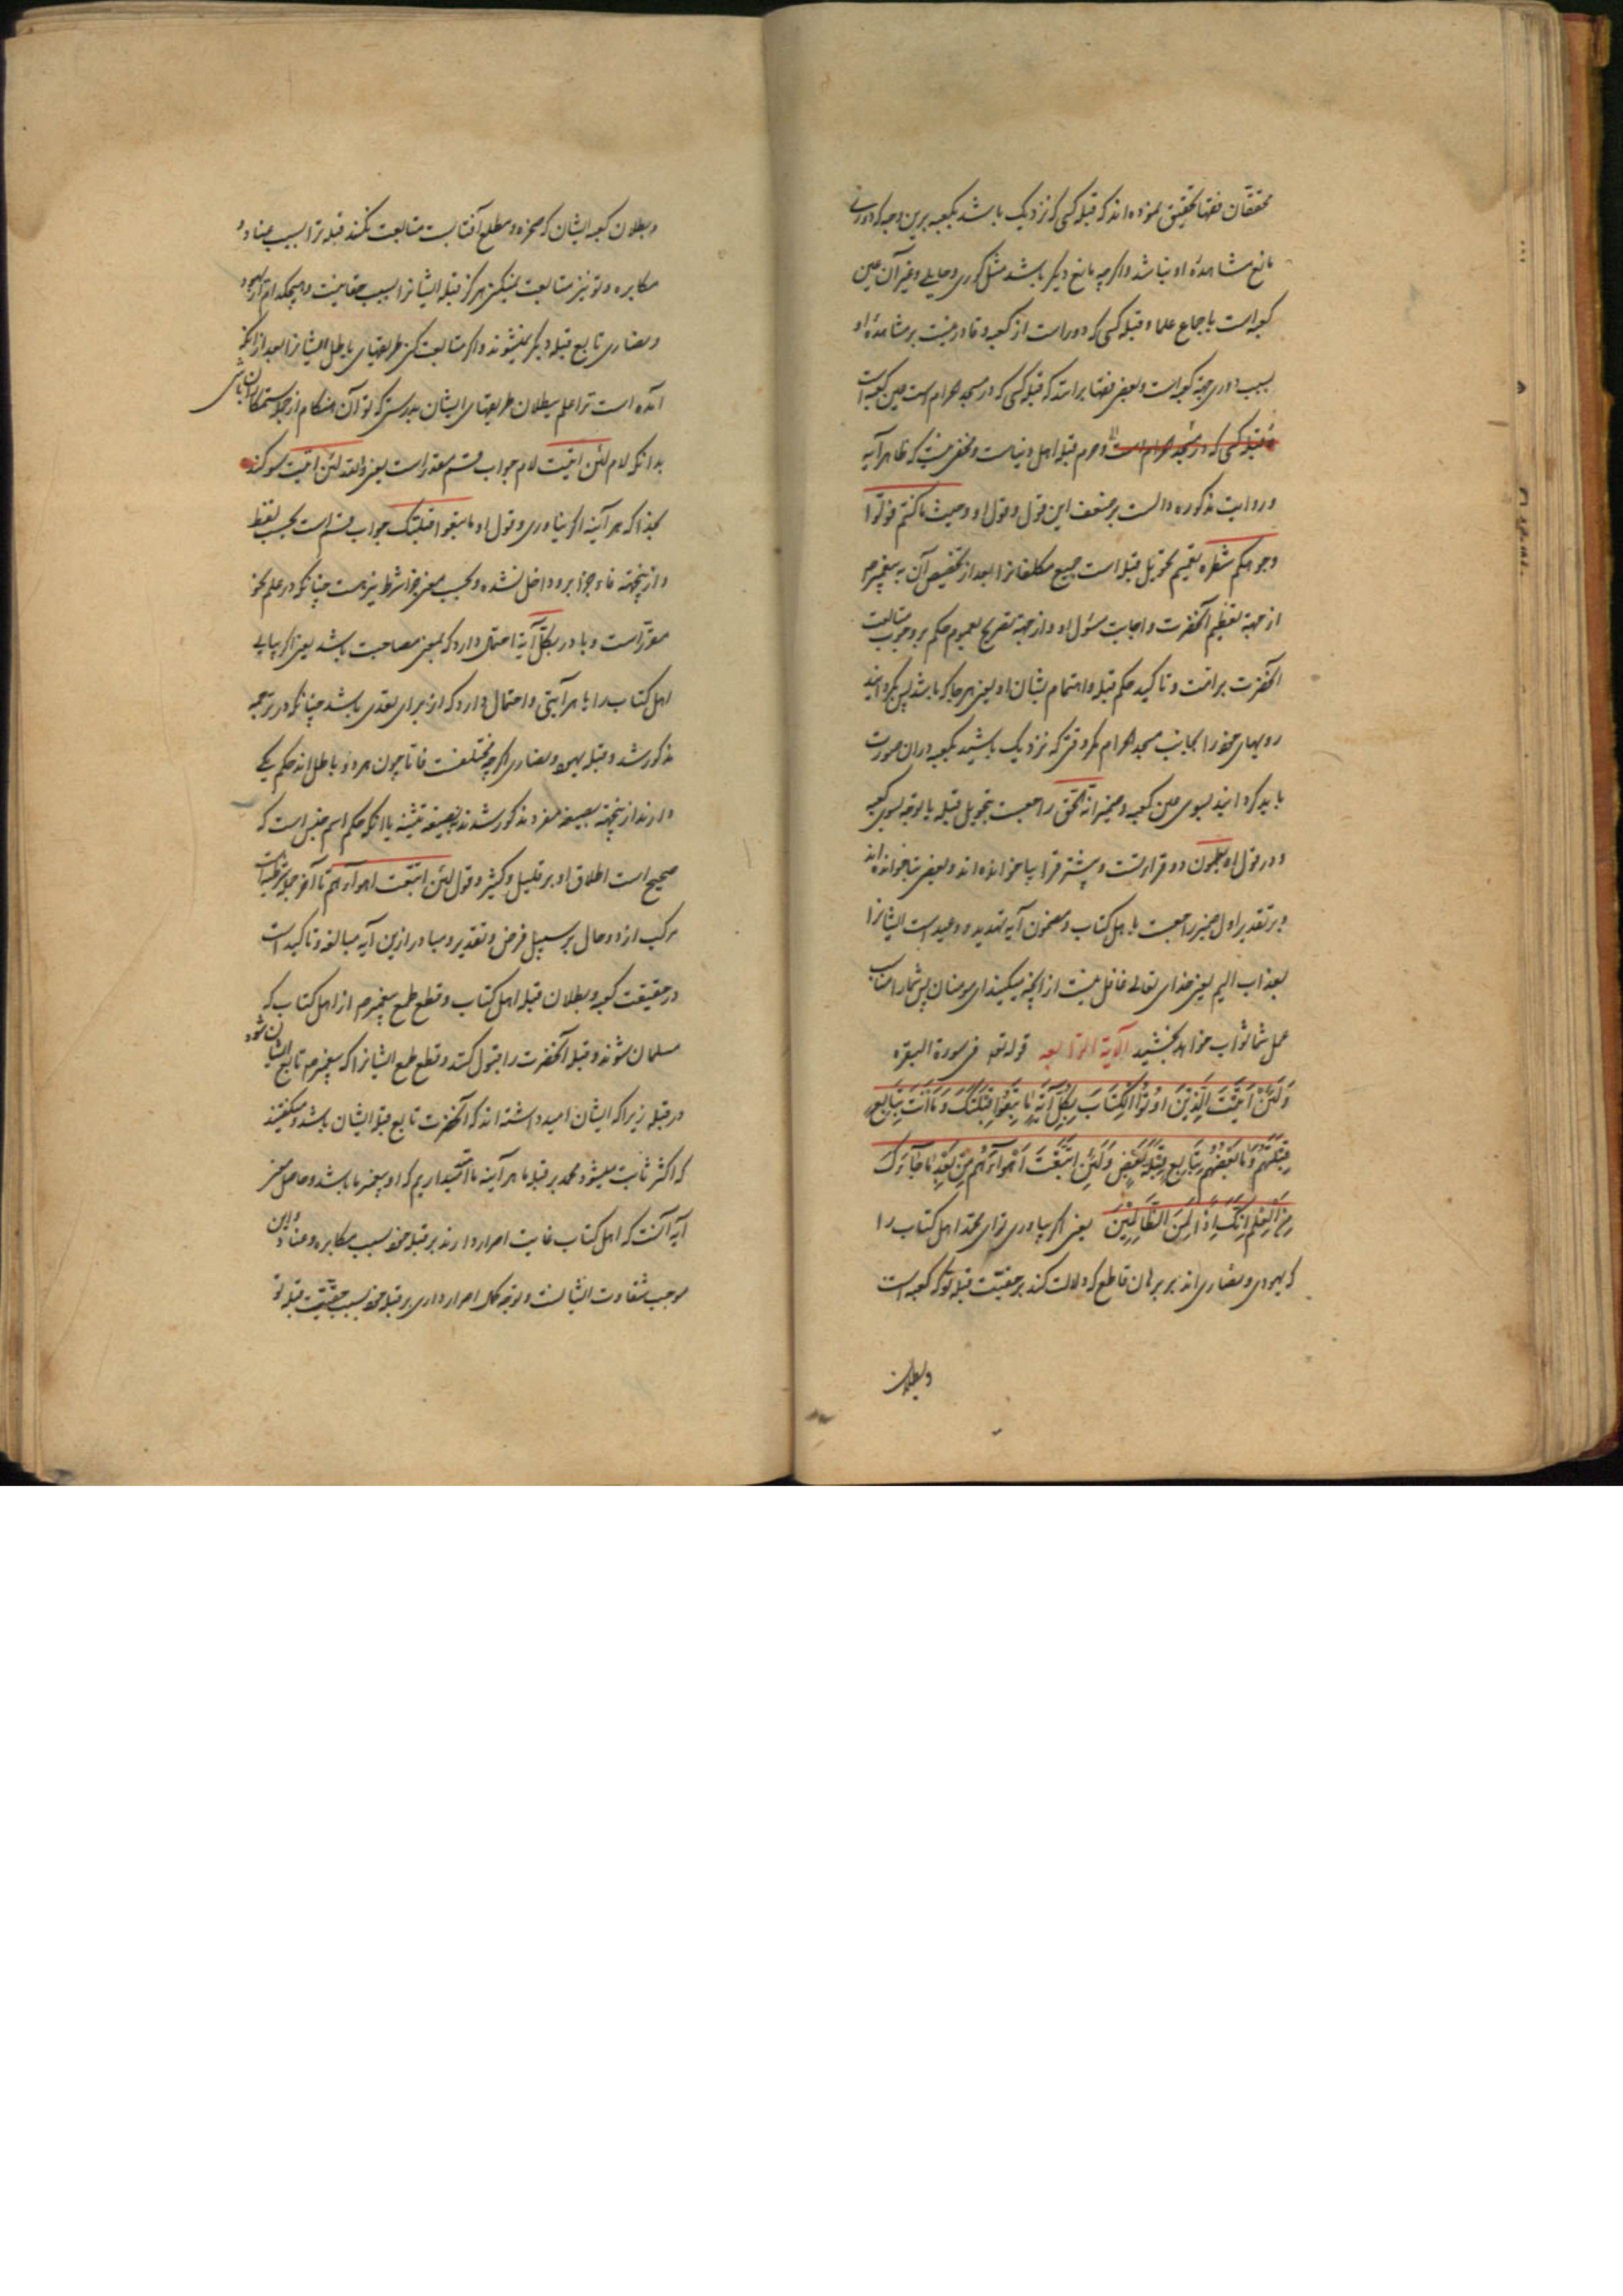 محققان فقها تحقیق نموده‌اند که قبله کسی که نزدیک باشد بکعبه برین وجه که دوری
مانع مشاهدهٔ او نباشد و اگرچه مانع دیگر باشد مثل کوری و حایلی و غیر آن عین
کعبه است باجماع علما و قبله کسی که دور است از کعبه و قادر نیست بر مشاهدهٔ او
بسبب دوری جهة کعبه است و بعضی فقها برانند که قبله کسی که در مسجد حرام است عین کعبه است
و قبله کسی که در مسجد حرام است و حرم قبله اهل دنیاست و مخفی نیست که ظاهر آیه
و روایت مذکوره دالست بر ضعف این قول و قول او و حیث ما کنتم فولوا
وجوهکم شطره تعمیم تحویل قبله است جمیع مکلفانرا بعد از تخصیص آن به پیغمبر ص
از جهة تعظیم آنحضرت و اجابت مسئول او و از جهة تصریح بعموم حکم بر وجوب متابعت
آنحضرت بر امت و تاکید حکم قبله و اهتمام بشان او یعنی هر جا که باشید پس بگردانید
رویهای خود را بجانب مسجد حرام مگر وقتی که نزدیک باشید بکعبه در ان صورت
باید گردانید بسوی عین کعبه و ضمیر انه الحق راجعست بتحویل قبله یا توجه بسوی کعبه
و در قول او یعلمون دو قراءتست و بیشتر قرا بیا خوانده اند و بعضی بتا خوانده‌اند
و بر تقدیر اول ضمیر راجعست باهل کتاب و مضمون آیه تهدید و وعید است ایشانرا
بعذاب الیم یعنی خدای تعالی غافل نیست از آنچه میکنید ای مومنان پس شمارا مناسب
عمل شما ثواب خواهد بخشید الآیة الرابعه قوله تع فی سورة البقره
وَلَئِنْ اَتَیْتَ الَّذِیْنَ اُوْتُوا الْکِتَابَ بِکُلِّ آیَةٍ مٰا تَبِعُوا قِبْلَتَکَ وَمَا اَنْتَ بِتٰابِعٍ
قِبْلَتَهُمْ وَمٰا بَعْضُهُمْ بِتٰابِعٍ قِبْلَةَ بَعْضٍ وَلَئِنِ اتَّبَعْتَ اَهْوآءَهُمْ مِنْ بَعْدِ مٰا جٰآءَکَ
مِنَ الْعِلْمِ اِنَّکَ اِذًا لَمِنَ الظَّالِمِیْنَ یعنی اگر بیاوری تو ای محمد اهل کتاب را
که یهودی و نصاری اند بر برهان قاطع که دلالت کند بر حقیّت قبلهٔ تو که کعبه است
و بطلان
و بطلان کعبه ایشان که صخره و مطلع آفتابست متابعت نکنند قبله ترا بسبب عناد و
مکابره و تو نیز متابعت نمیکنی هرگز قبله ایشانرا بسبب حقانیت و هیچکدام از یهود
و نصاری تابع قبله دیگر نمیشوند و اگر متابعت کنی طریقهای باطل ایشانرا بعد از انکه
آمده است ترا علم ببطلان طریقهای ایشان بدرستی که تو آن هنگام از جمله ستمکاران باشی
بدانکه لام لئن اتیت لام جواب قسم مقدر است یعنی والله لئن اتیت سوگند
بخدا که هر آینه اگر بیاوری و قول او ما تبعوا قبلتک جواب قسم است بحسب لفظ
و از ینجهة فاء جزا برو داخل نشده و بحسب معنی جزا شرط نیز هست چنانکه در علم نحو
مقرّر است و با در بکلّ آیة احتمال دارد که بمعنی مصاحبت باشد یعنی اگر بیایی
اهل کتاب را با هر آیتی و احتمال دارد که از برای تعدی باشد چنانکه در ترجمه
مذکور شد و قبله یهود و نصاری اگرچه مختلفست فاما چون هر دو باطل اند حکم یکی
دارند از ینجهة بصیغه مفرد مذکور شد نه بصیغه تثنیه یا انکه حکم اسم جنس است که
صحیح است اطلاق او بر قلیل و کثیر و قول لئن اتبعت اهوآءهم تا آخر جمله شرطیه است
مرکب از دو حال بر سبیل فرض و تقدیر و مبادر ازین آیه مبالغه و تاکید است
در حقیقت کعبه و بطلان قبله اهل کتاب و قطع طمع پیغمبر ص از اهل کتاب که
مسلمان شوند و قبله آنحضرت را قبول کنند و قطع طمع ایشانرا که پیغمبر ص تابع ایشان شود
در قبله زیرا که ایشان امید داشته اند که آنحضرت تابع قبله ایشان باشد و میگفتند
که اگر ثابت میشود محمد بر قبله ما هر آینه ما امّیدداریم که او پیغمبر ما باشد و حاصل معنی
آیه آنست که اهل کتاب غایت اصرار دارند بر قبله خود بسبب مکابره و عناد و این
موجب شقاوت ایشانست و توجه اصرار داری بر قبله خود بسبب حقیّت قبله تو